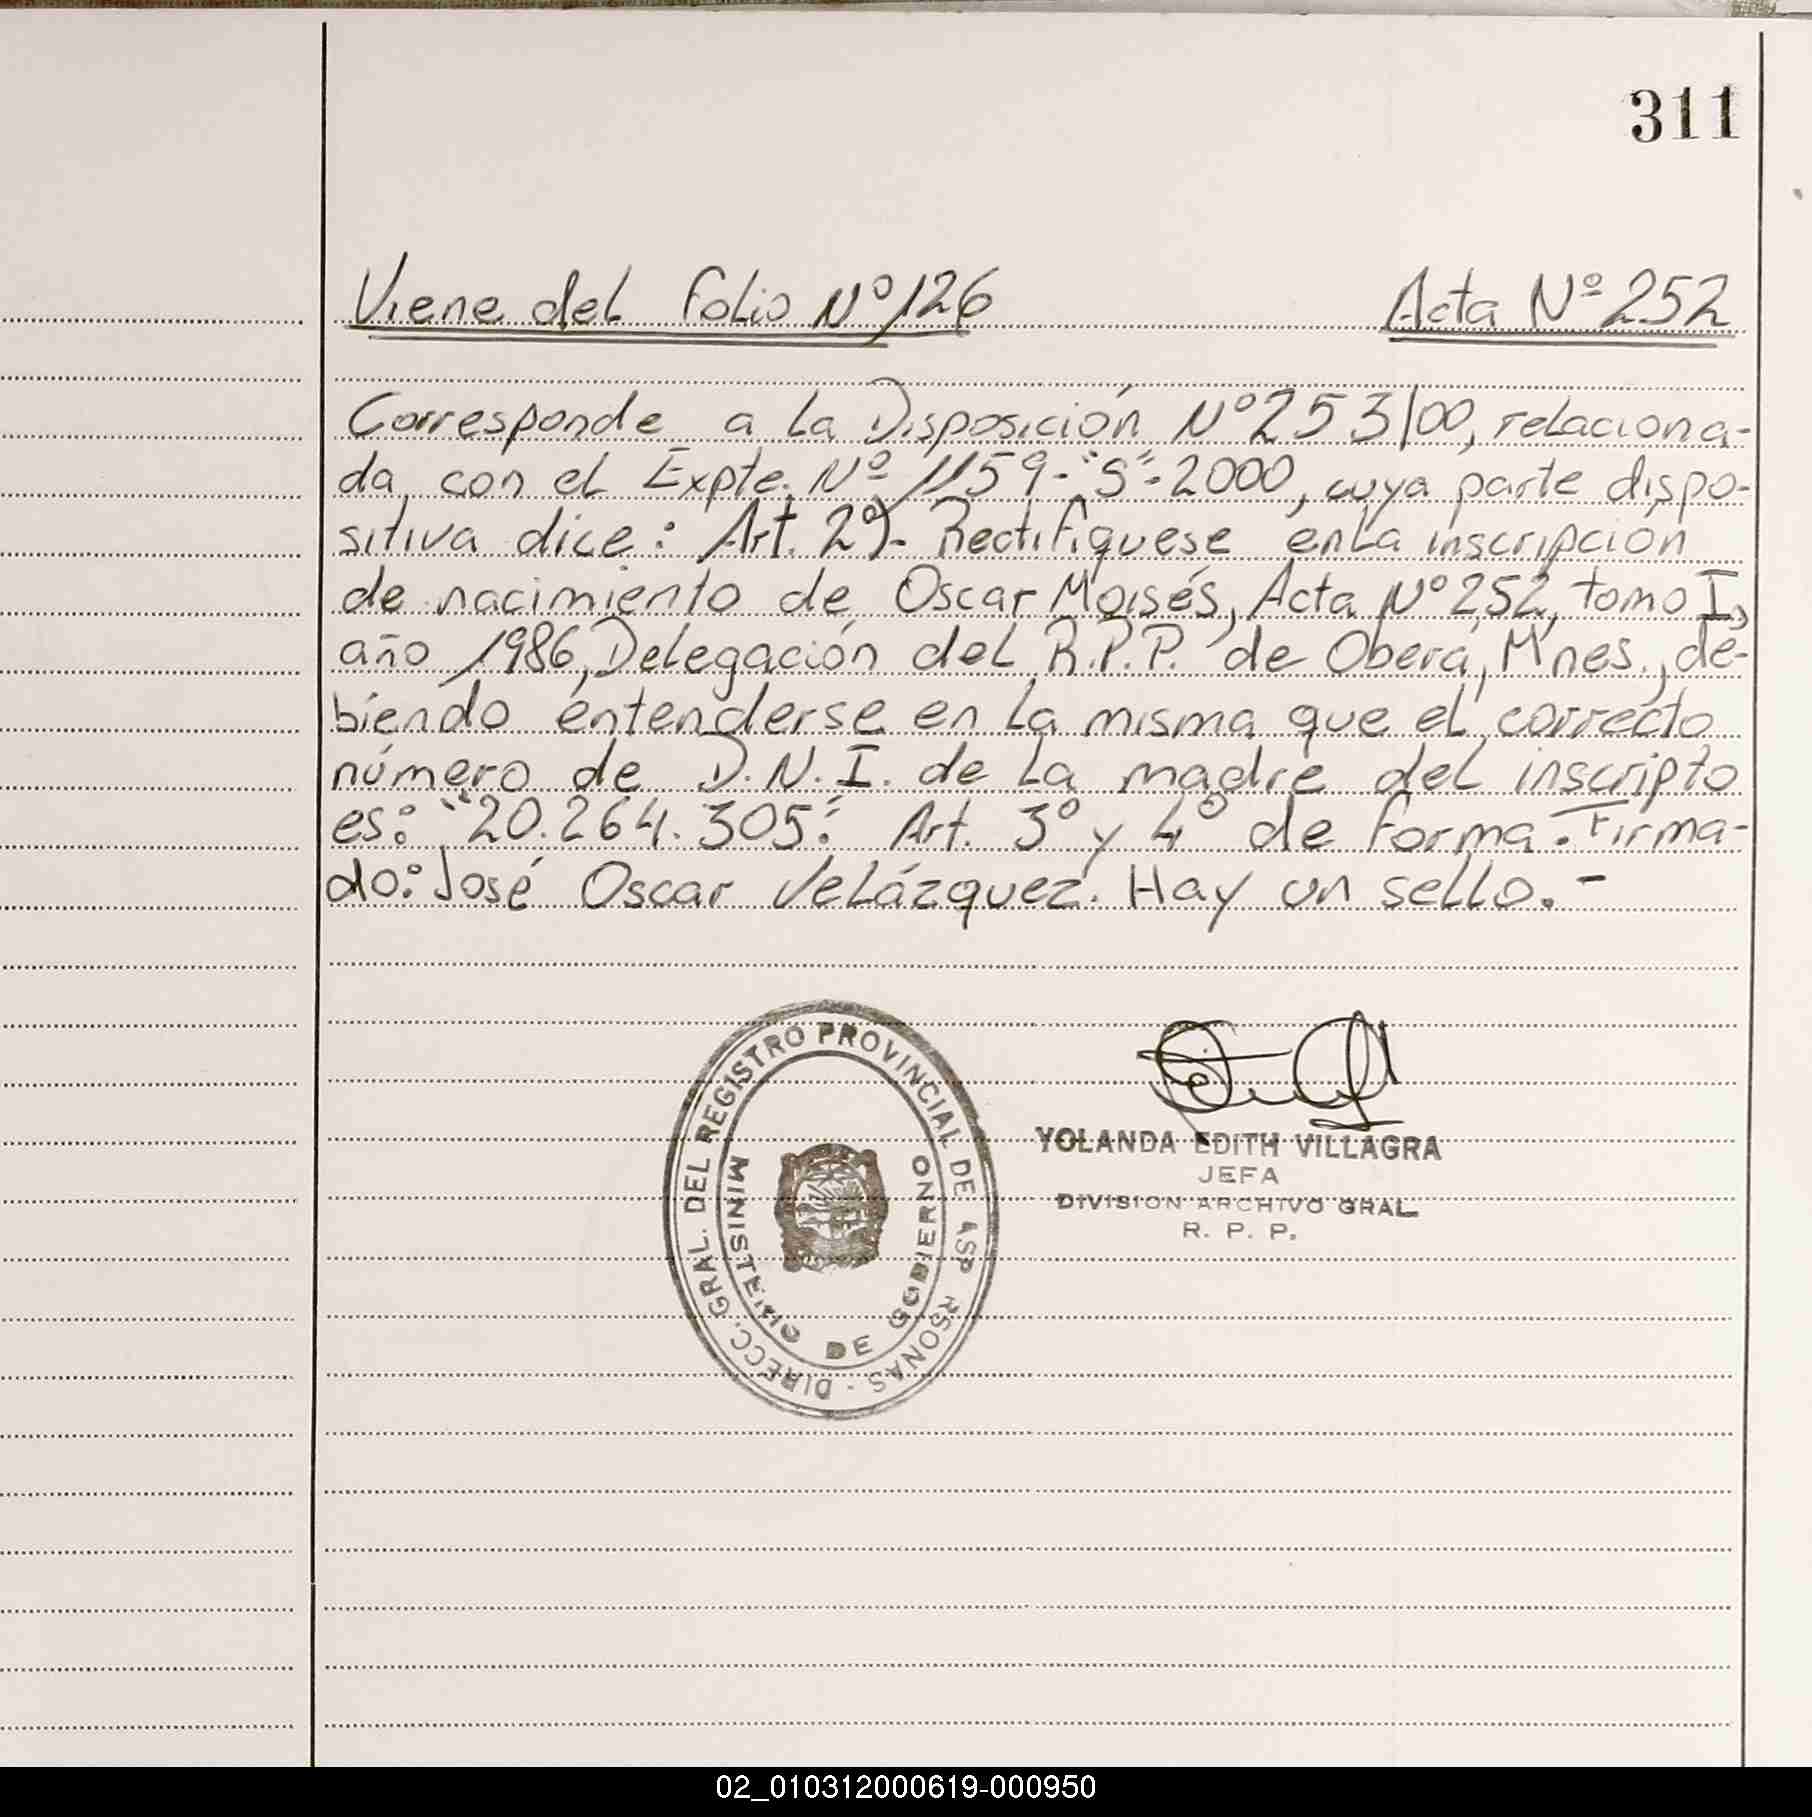 311
Viene del folio Nº 126 Acta Nº 252
Corresponde a la Disposición Nº 253/00, relaciona-
da con el Expte. Nº 1159-"S"-2000, cuya parte dispo-
sitiva dice: Art. 2º)- Rectifíquese en la inscripción
de nacimiento de Oscar Moisés, Acta Nº 252, tomo I,
año 1986, Delegación del R.P.P. de Oberá, Mnes., de-
biendo entenderse en la misma que el correcto
número de D.N.I. de la madre del inscripto
es: "20.264.305". Art. 3º y 4º de forma. Firma-
do: José Oscar Velázquez. Hay un sello.-
DIRECC. GRAL. DEL REGISTRO PROVINCIAL DE LAS PERSONAS -
MINISTERIO DE GOBIERNO
YOLANDA EDITH VILLAGRA
JEFA
DIVISION ARCHIVO GRAL
R. P. P.
02_010312000619-000950